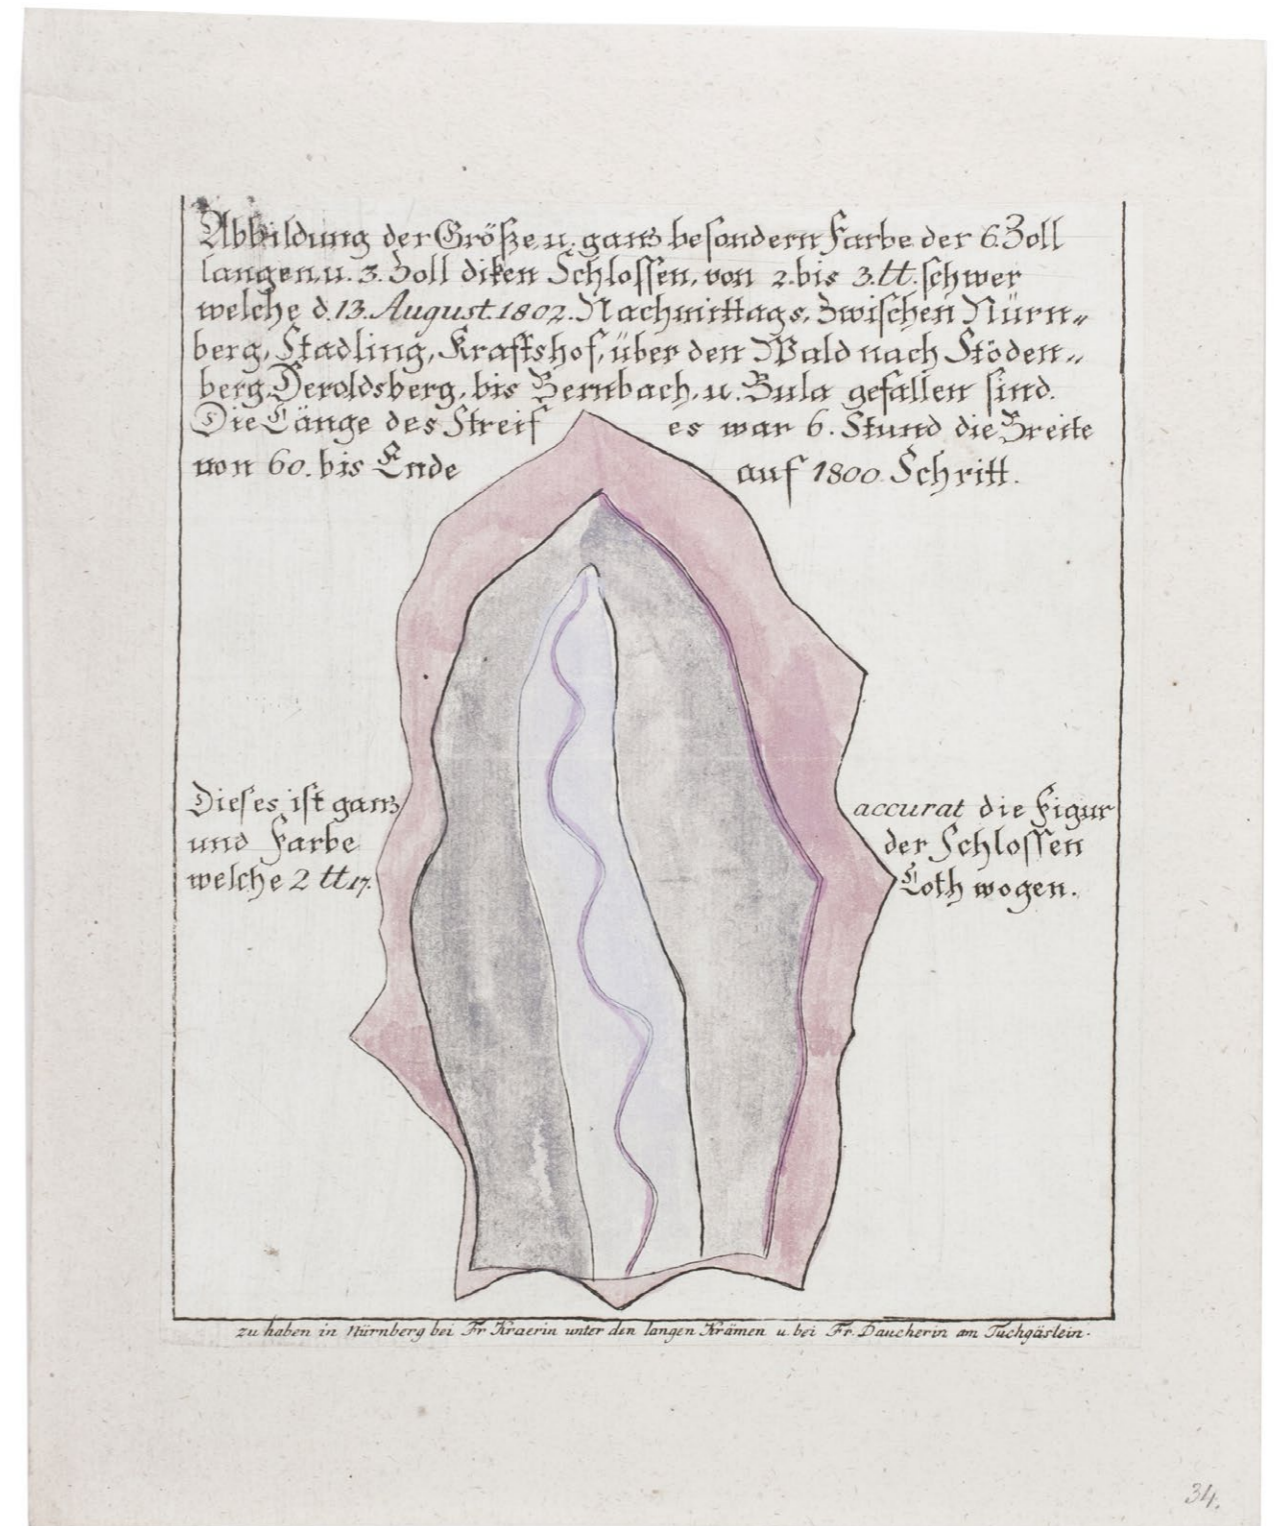 Abbildung der Größe u. ganz besondern Farbe der 6. Zoll
langen, u. 3. Zoll diken Schlossen, von 2. bis 3. ℔. schwer
welche d. 13. August. 1802. Nachmittags, zwischen Nürn„
berg, Stadling, Kraftshof, über den Wald nach Stöden„
berg, Heroldsberg, bis Bernbach, u. Bula gefallen sind.
Die Länge des Streif es war 6. Stund die Breite
von 60. bis Ende auf 1800. Schritt.
Dieses ist ganz accurat die Figur
und Farbe der Schlossen
welche 2 ℔ 17. Loth wogen.
zu haben in Nürnberg bei Fr. Kraerin unter den langen Krämen u. bei Fr. Daucherin am Tuchgäslein.
34.